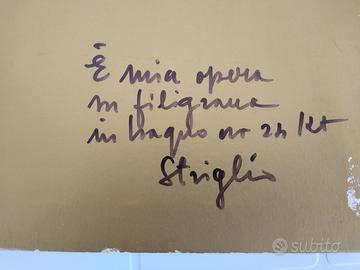 È mia opera
in filigrana
in bagno oro 24 Kt
Striglio
subito